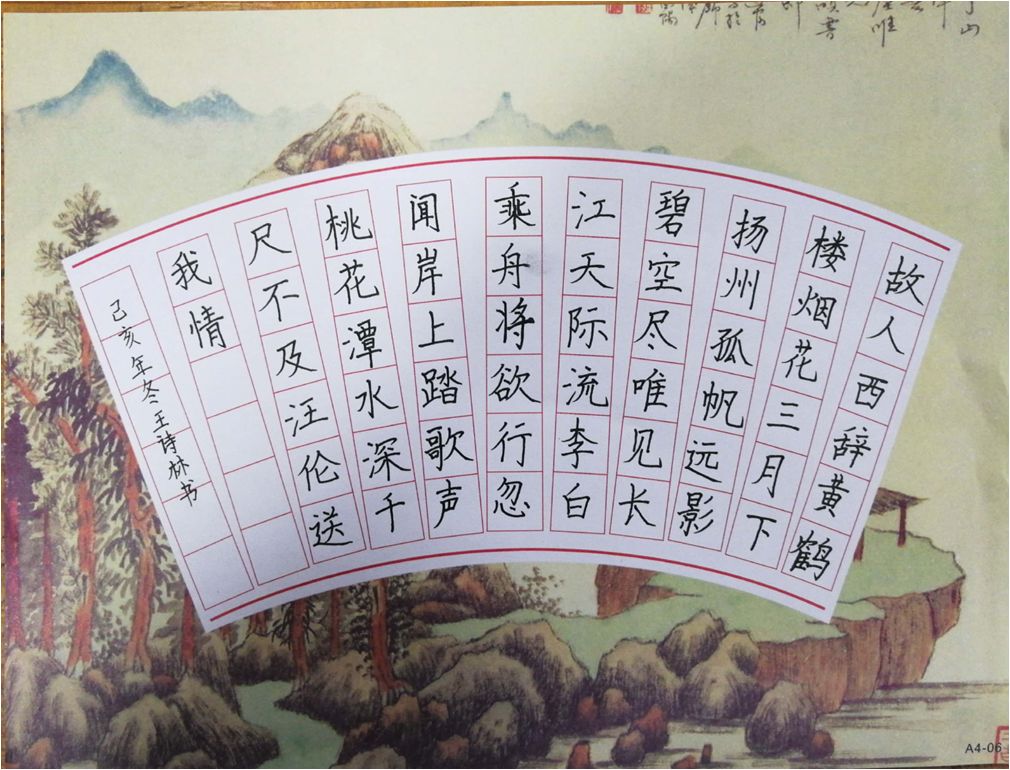 故人西辞黄鹤
楼烟花三月下
扬州孤帆远影
碧空尽唯见长
江天际流李白
乘舟将欲行忽
闻岸上踏歌声
桃花潭水深千
尺不及汪伦送
我情
己亥年冬王诗林书
A4-06